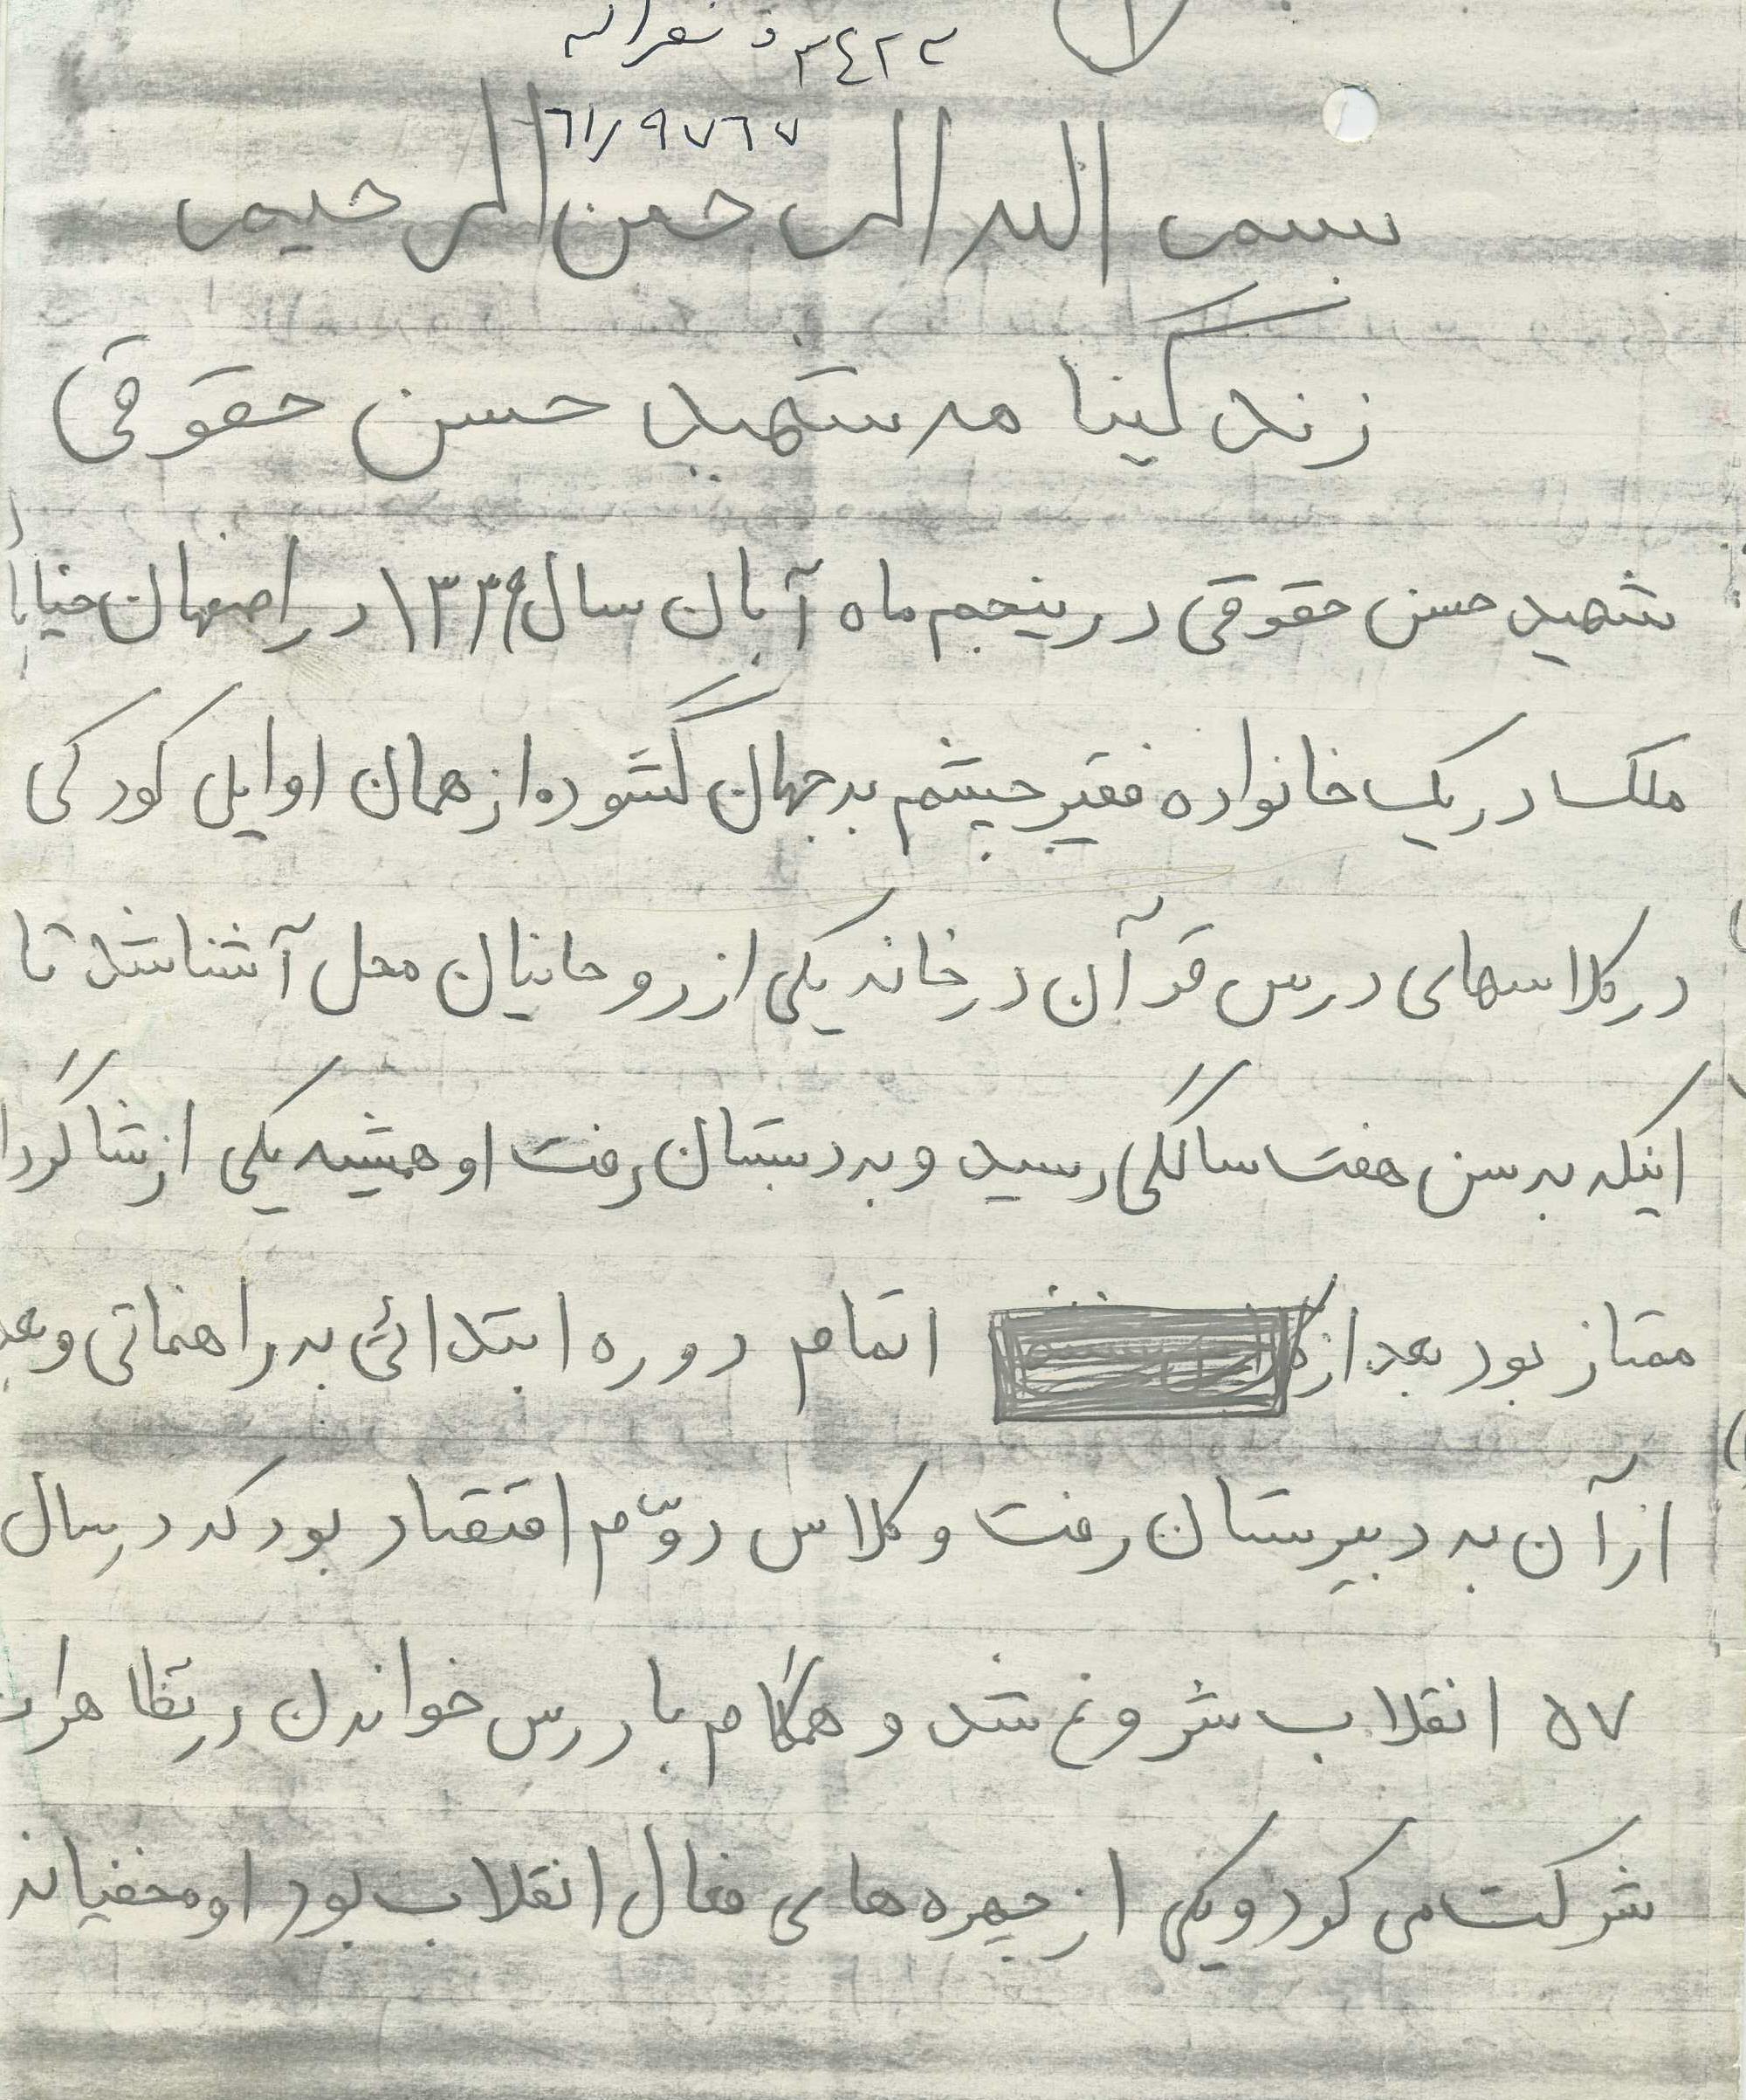 ۱
۳٤۲۲
٦۱/۹۷٦۷
بسم الله الرحمن الرحیم
زندگینامه شهید حسن حقوقی
شهید حسن حقوقی در پنجم ماه آبان سال ۱۳۳۹ در اصفهان خیابا
ملک در یک خانواده فقیر چشم به جهان گشود. از همان اوایل کودکی
در کلاسهای درس قرآن در خانه یکی از روحانیان محل آشنا شد تا
اینکه به سن هفت سالگی رسید و به دبستان رفت او همیشه یکی از شاگردا
ممتاز بود بعد از اتمام دوره ابتدائی به راهنمائی و بعد
از آن به دبیرستان رفت و کلاس دوّم اقتصاد بود که در سال
۵۷ انقلاب شروع شد و همگام با درس خواندن در تظاهرات
شرکت می کرد و یکی از چهره های فعال انقلاب بود او مخفیانه